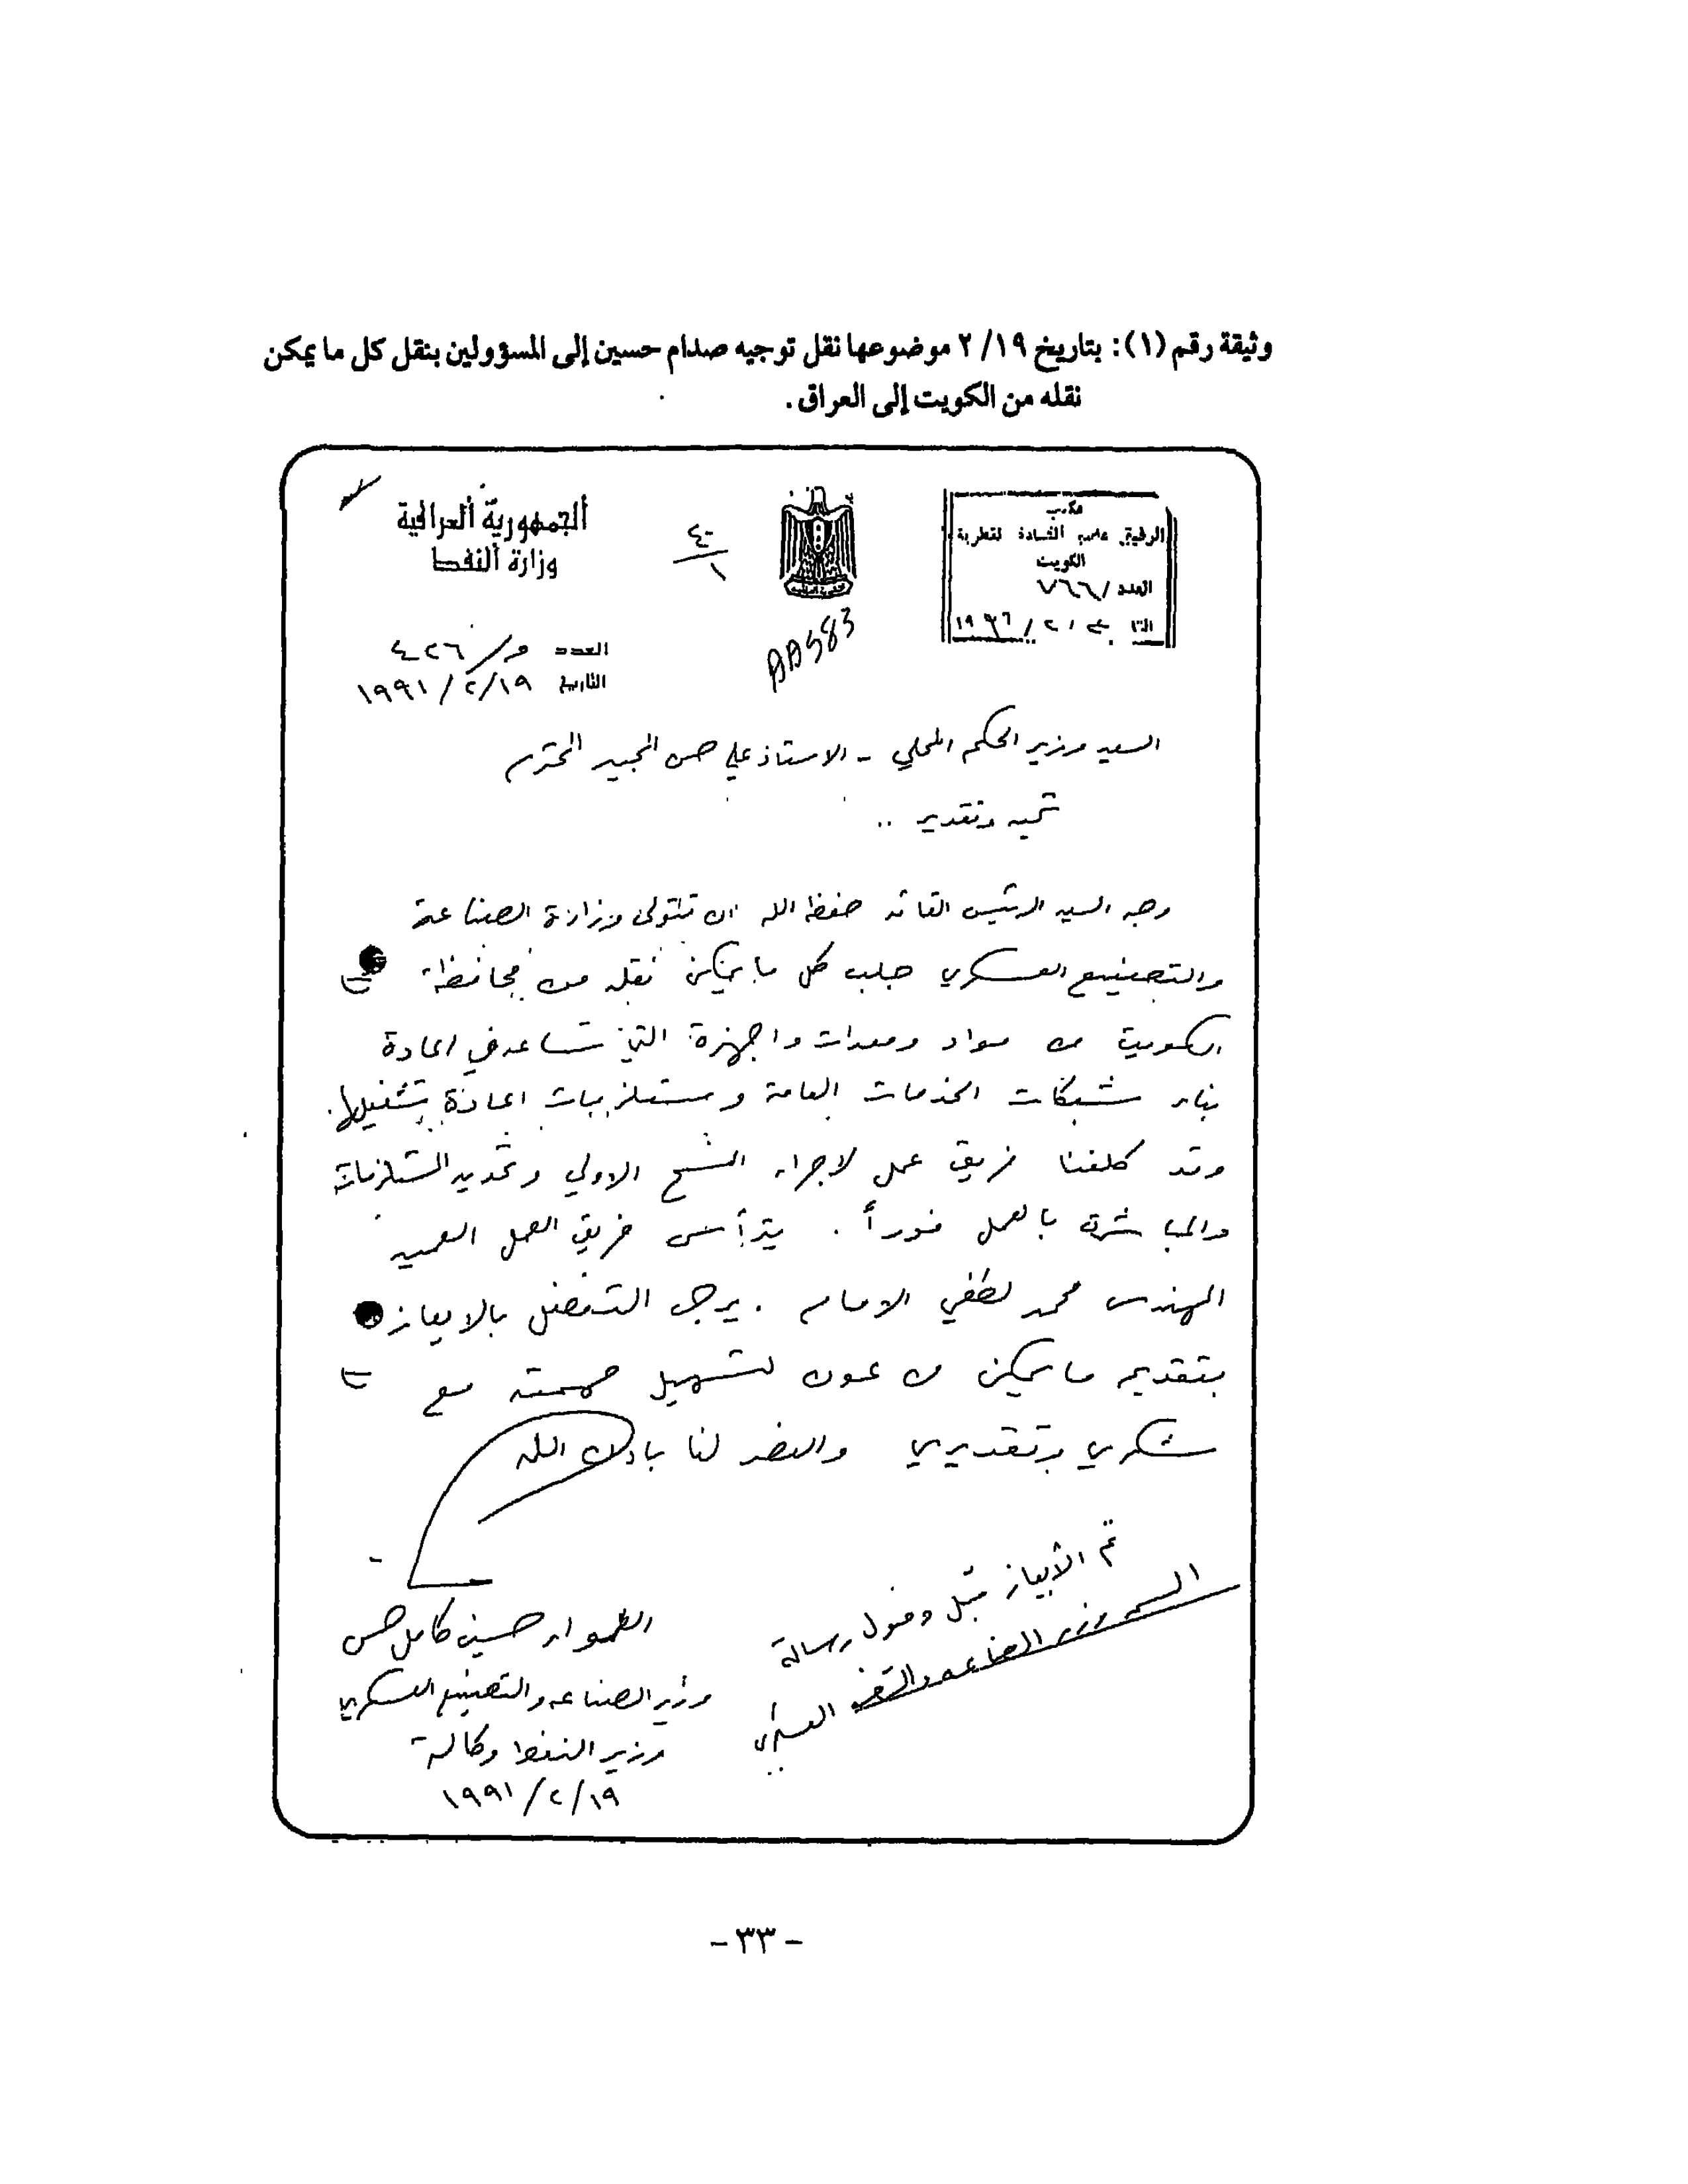 وثيقة رقم (١): بتاريخ ١٩/ ٢ موضوعها نقل توجيه صدام حسين إلى المسؤولين بنقل كل ما يمكن
نقله من الكويت إلى العراق.
الجمهورية العراقية
وزارة النفط
مكتب
الرفيق عضو القيادة القطرية
الكويت
العدد / ٧٦٦
٤٠
١
AA583
العدد و / ٤٢٦
التاريخ ١٩ / ٢ / ١٩٩١
السيد وزير الحكم المحلي - الاستاذ علي حسن المجيد المحترم
تحيه وتقدير ..
وجه السيد الرئيس القائد حفظه الله ان تتولى وزارة الصناعة
والتصنيع العسكري جلب كل ما يمكن نقله من محافظة
الكويت من مواد ومعدات واجهزة التي تساعد في اعادة
بناء شبكات الخدمات العامة ومستلزمات اعادة تشغيلها.
وقد كلفنا فريق عمل لاجراء المسح الاولي وتحديد المستلزمات
والمباشرة بالعمل فوراً . يترأس فريق العمل العميد
المهندس محمد لطفي الامام . يرجى التفضل بالايعاز
بتقديم ما يمكن من عون لتسهيل مهمته مع
شكري وتقديري والنصر لنا باذن الله
تم الأيعاز قبل وصول رسالة
السيد وزير الصناعه والتصنيع العسكري
حسين كامل حسن
وزير الصناعه والتصنيع العسكري
وزير النفط وكالة
١٩ / ٢ / ١٩٩١
- ٣٣ -